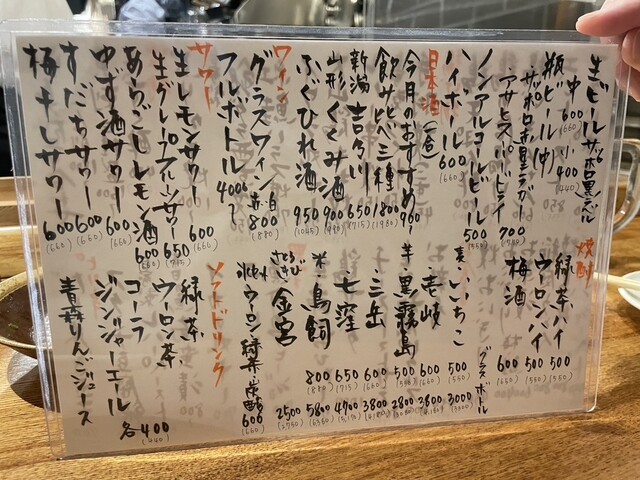 生ビール サッポロ黒ラベル
中 600 (660) 小 400 (440)
瓶ビール(中) 850
サッポロ赤星ラガー
アサヒスーパードライ 700
ノンアルコールビール 500 (550)
ハイボール 600 (660)
日本酒(一合)
今月のおすすめ 900〜
飲みくらべ三種 1800 (1980)
新潟 吉乃川 650 (715)
山形 くどみ酒 900 (990)
ふぐひれ酒 950 (1045)
ワイン
グラスワイン 赤・白 800 (880)
フルボトル 4000〜
サワー
生レモンサワー 600 (660)
生グレープフルーツサワー 650 (715)
あらごしレモン酒 600 (660)
ゆず酒サワー 600 (660)
すだちサワー 600 (660)
梅干しサワー 600 (660)
焼酎
緑茶ハイ 500 (550)
ウーロンハイ 500 (550)
梅酒 600 (660)
グラス ボトル
麦・いいちこ 500 (550) 3000 (3300)
壱岐 600 (660) 2800
芋・黒霧島 500 (550) 2800
三岳 600 (660) 3800
七窪 650 (715) 4700 (5170)
米・鳥飼 800 (880) 5800 (6380)
さとうきび 金宮 2500 (2750)
水セット ウーロン・緑茶・炭酸 600 (660)
ソフトドリンク
緑茶
ウーロン茶
コーラ
ジンジャーエール
青森りんごジュース
各400 (440)